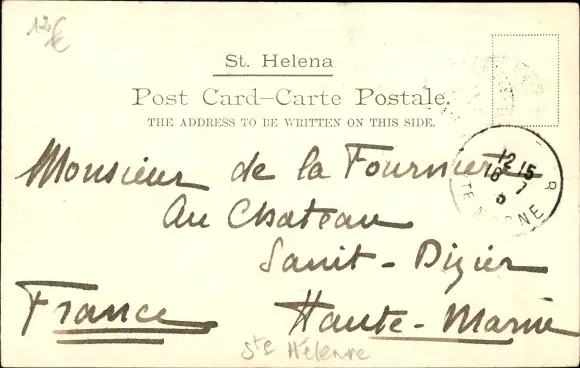 12€
St. Helena
Post Card—Carte Postale.
THE ADDRESS TO BE WRITTEN ON THIS SIDE.
Monsieur de la Fournière
Au Chateau
Saint-Dizier
France Haute-Marne
12 15
18 7
TE MARNE
Ste Hélène